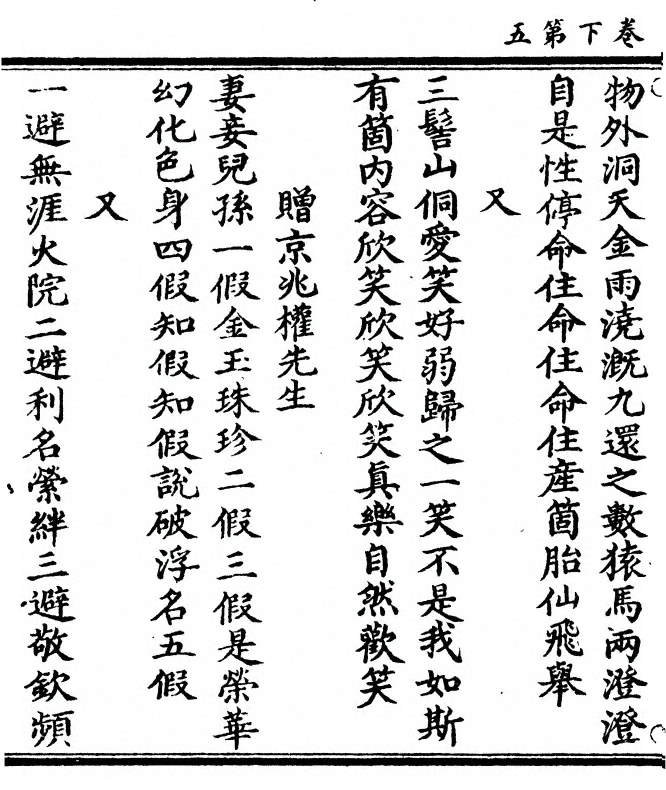 卷下第五
物外洞天金雨澆漑九還之數猿馬兩澄澄
自是性停命住命住命住産箇胎仙飛舉
又
三髻山侗愛笑好弱歸之一笑不是我如斯
有箇内容欣笑欣笑欣笑眞樂自然歡笑
贈京兆權先生
妻妾兒孫一假金玉珠珍二假三假是榮華
幻化色身四假知假知假說破浮名五假
又
一避無涯火院二避利名縈絆三避敬欽頻